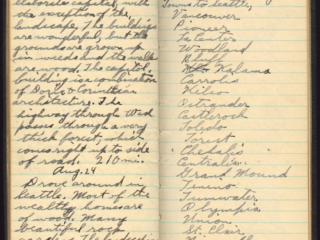 elaborate capitol, with
the exception of the
landscape. The buildings
are wonderful, but the
grounds are grown up
in weeds and the walks
are wood. The capitol
building is a combination
of Doric & Corinthian
architecture. The
highway through Wed
passes through a very
thick forest, which
comes right up to side
of road. 210 mi.
Aug. 24
Drove around in
Seattle. Most of the
wealthy homes are
of wood. Many
beautiful rock
Towns to Seattle,
Vancouver
Pioneer
La Center
Woodland
Kalama
Carrolls
Kelso
Ostrander
Castlerock
Toledo
Forest
Chehalis
Centralia
Grand Mound
Tenino
Tumwater
Olympia
Union
St. Clair